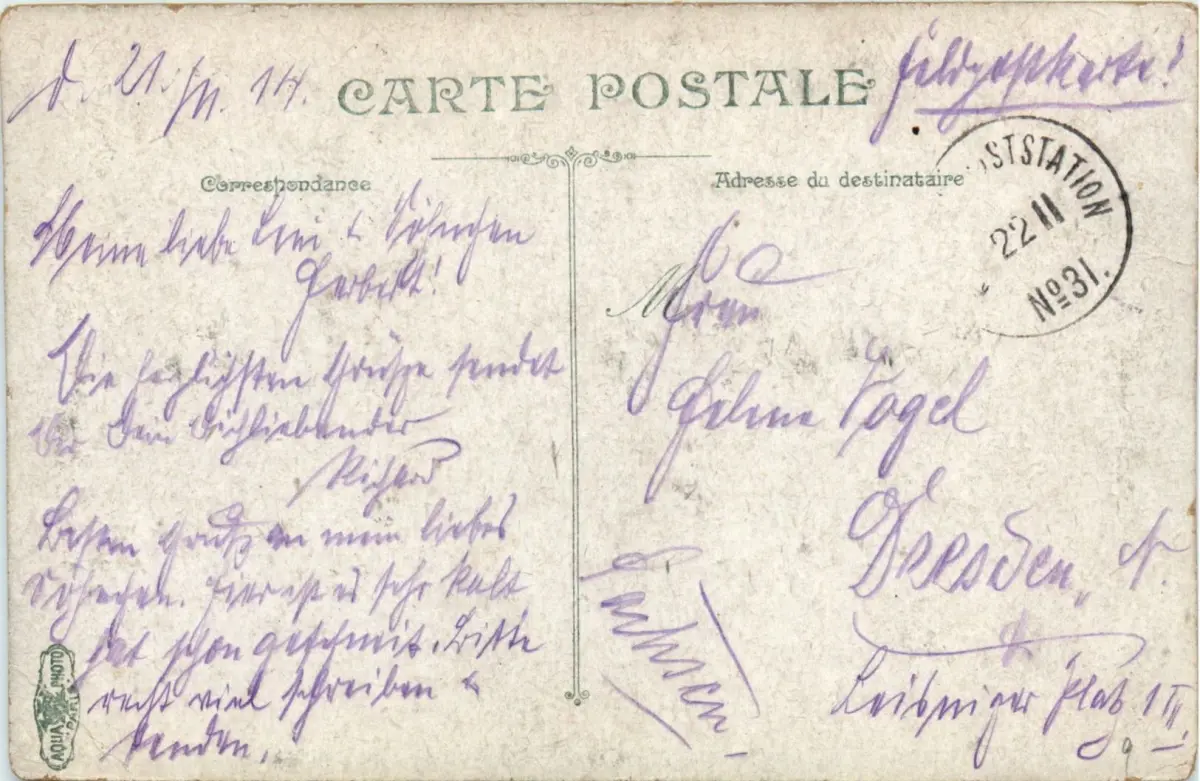 d. 21./11. 14.
CARTE POSTALE
Feldpostkarte!
Correspondance
Adresse du destinataire
STSTATION
22 11
No 31.
Meine liebe Leni & Söhnchen
Herbert!
Die herzlichsten Grüsse sendet
Dir Dein Dichliebender
Richard
Besten Gruß an mein liebes
Söhnchen. Hier ist es sehr kalt
hat schon geschneit. Bitte
recht viel schreiben &
senden.
AQUA PHOTO
M
Frau
Helene Vogel
Dresden, N.
Leisniger Platz 1 II
Sachsen